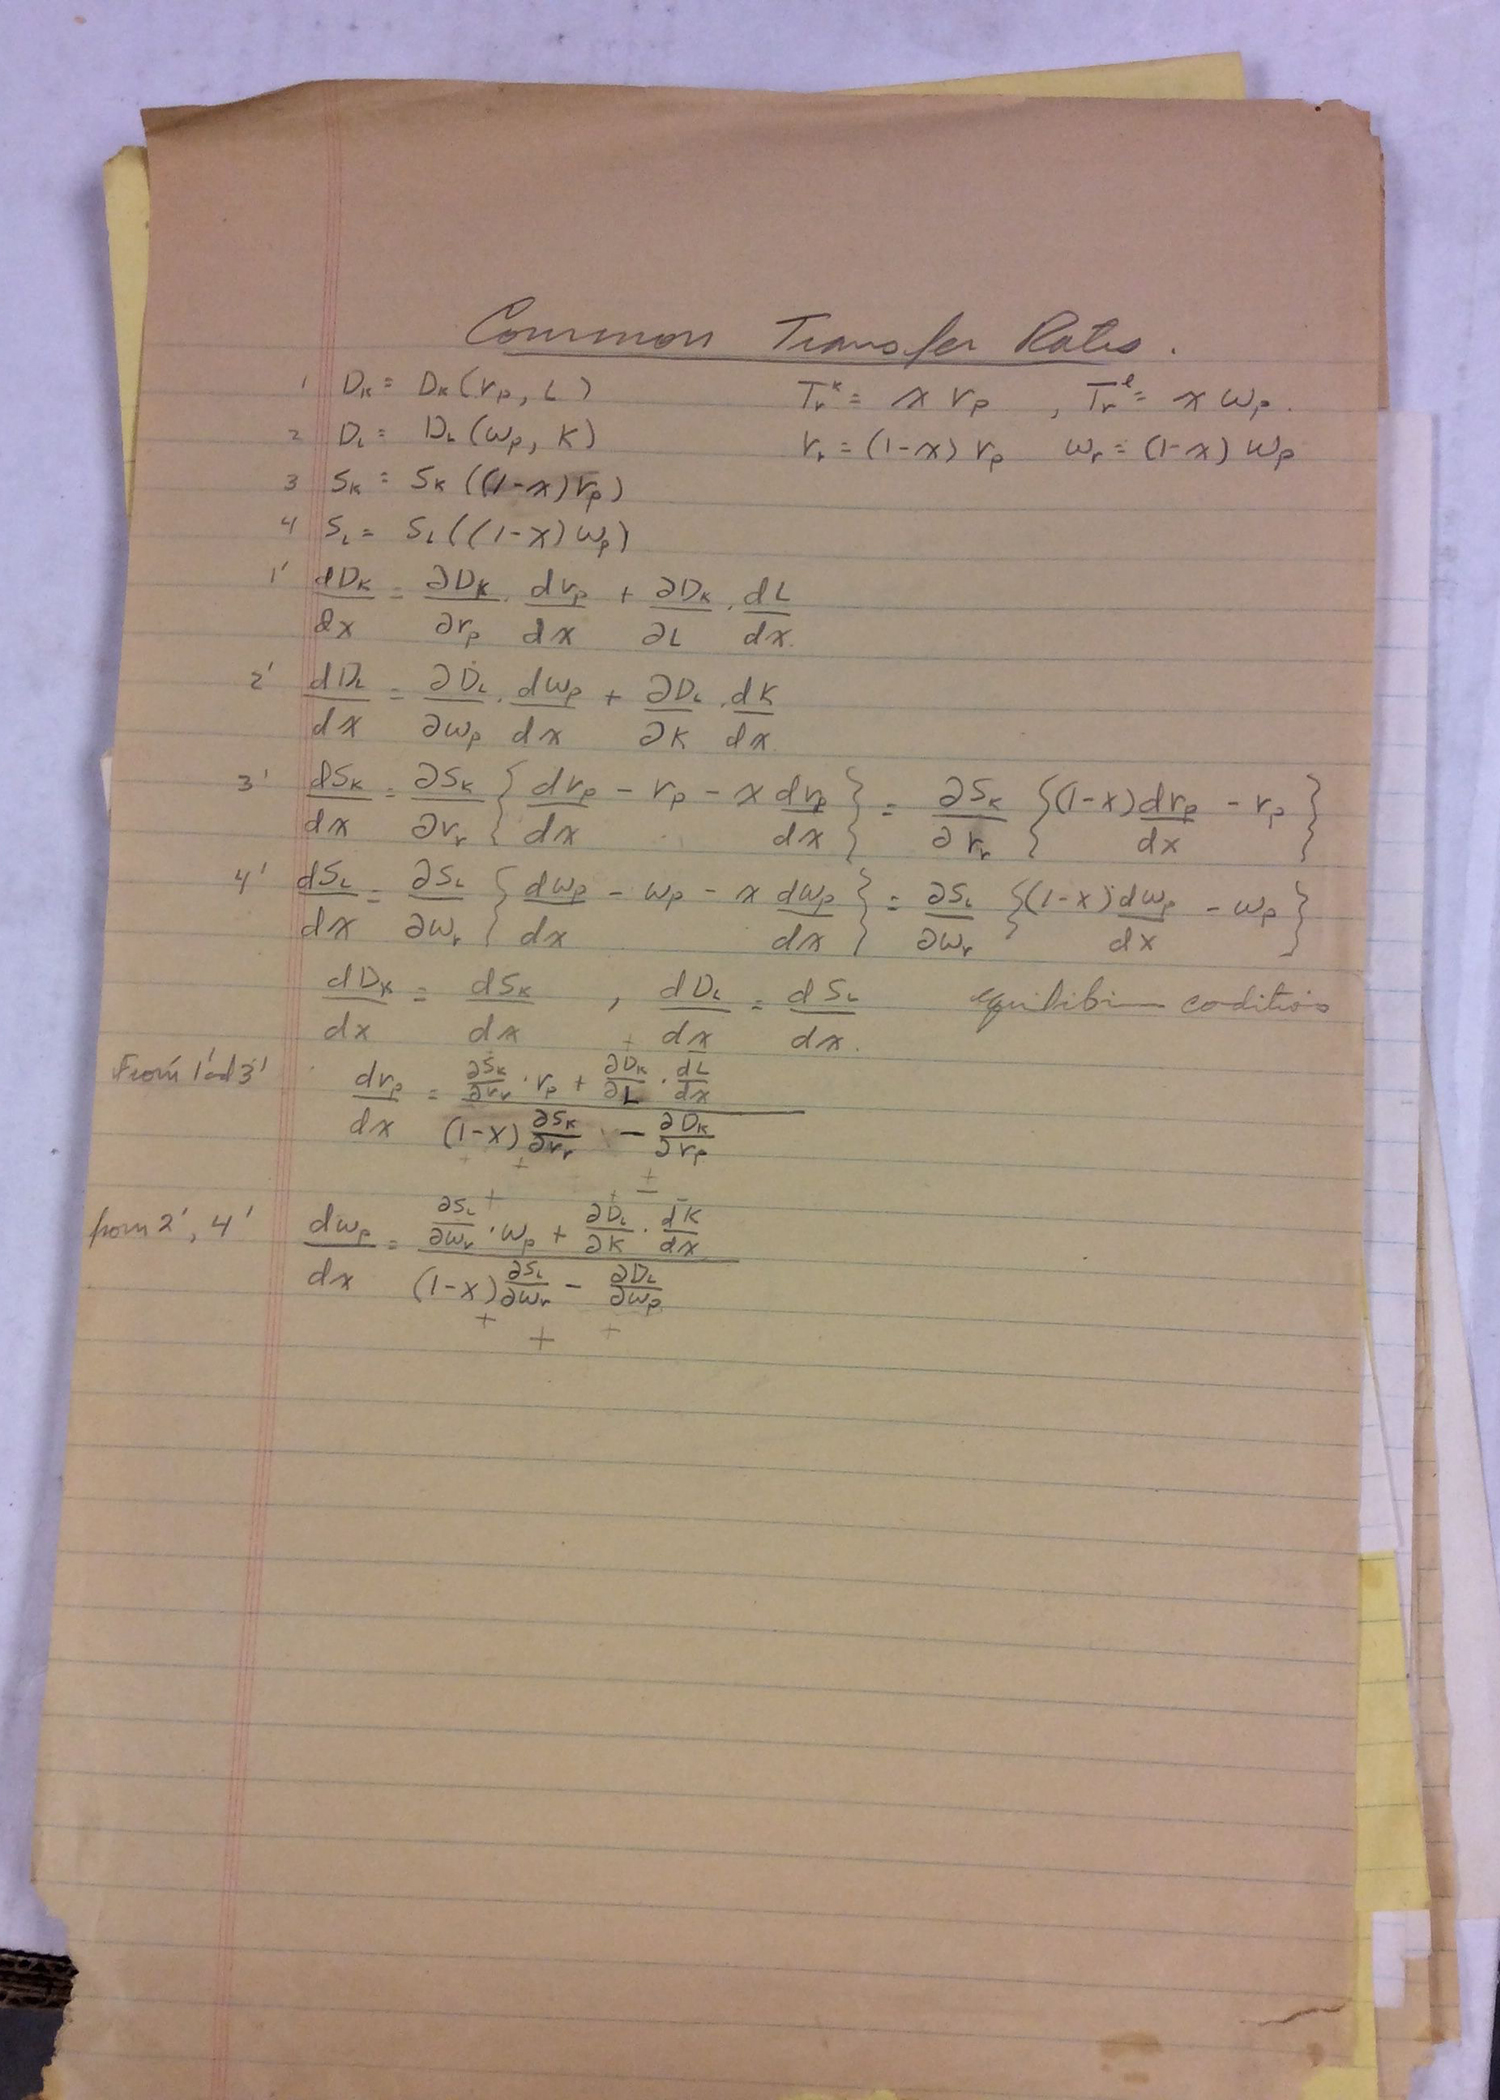 Common Transfer Rates.
1 D_K = D_K (r_p, L) T_r^k = x r_p , T_r^l = x w_p.
2 D_L = D_L (w_p, K) r_r = (1-x) r_p w_r = (1-x) w_p
3 S_K = S_K ((1-x) r_p)
4 S_L = S_L ((1-x) w_p)
1' dD_K/dx = ∂D_K/∂r_p . dr_p/dx + ∂D_K/∂L . dL/dx.
2' dD_L/dx = ∂D_L/∂w_p . dw_p/dx + ∂D_L/∂K . dK/dx.
3' dS_K/dx = ∂S_K/∂r_r { dr_p/dx - r_p - x dr_p/dx } = ∂S_K/∂r_r { (1-x) dr_p/dx - r_p }
4' dS_L/dx = ∂S_L/∂w_r { dw_p/dx - w_p - x dw_p/dx } = ∂S_L/∂w_r { (1-x) dw_p/dx - w_p }
dD_K/dx = dS_K/dx , dD_L/dx = dS_L/dx. equilibrium conditions
From 1' and 3' dr_p/dx = (∂S_K/∂r_r . r_p + ∂D_K/∂L . dL/dx) / ((1-x) ∂S_K/∂r_r - ∂D_K/∂r_p)
from 2', 4' dw_p/dx = (∂S_L/∂w_r . w_p + ∂D_L/∂K . dK/dx) / ((1-x) ∂S_L/∂w_r - ∂D_L/∂w_p)
+ + +